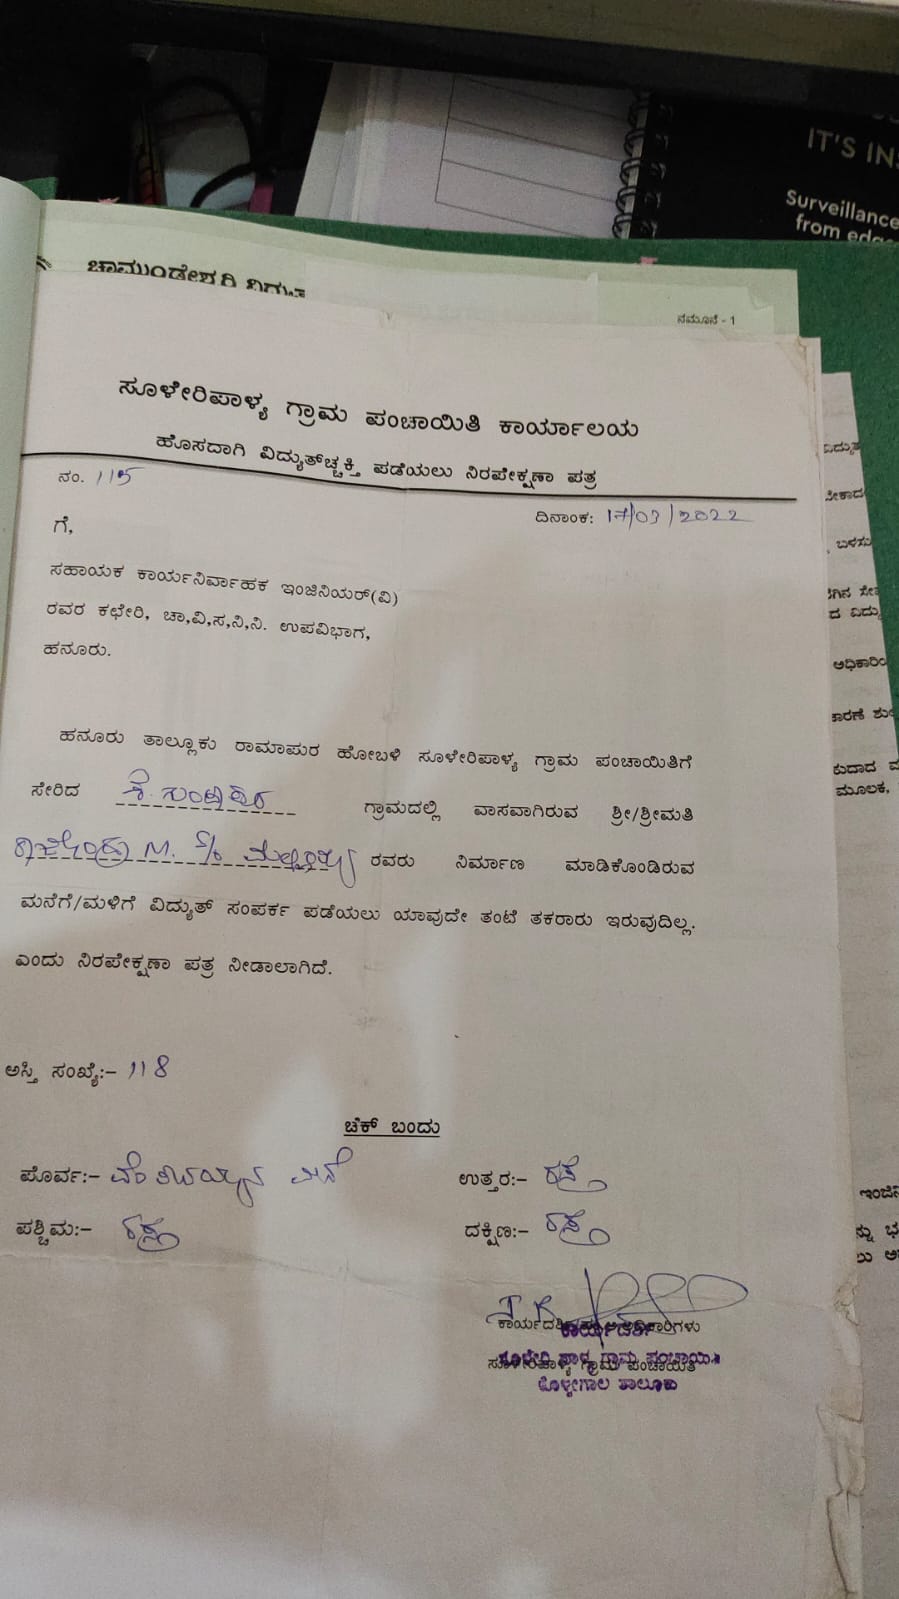 IT'S IN
Surveillance
from edge
ಚಾಮುಂಡೇಶ್ವರಿ ವಿದ್ಯುತ್
ನಮೂನೆ - 1
ಸೂಳೇರಿಪಾಳ್ಯ ಗ್ರಾಮ ಪಂಚಾಯಿತಿ ಕಾರ್ಯಾಲಯ
ಹೊಸದಾಗಿ ವಿದ್ಯುತ್‌ಚ್ಚಕ್ತಿ ಪಡೆಯಲು ನಿರಪೇಕ್ಷಣಾ ಪತ್ರ
ನಂ. 115
ದಿನಾಂಕ: 17/03/2022
ಗೆ,
ಸಹಾಯಕ ಕಾರ್ಯನಿರ್ವಾಹಕ ಇಂಜಿನಿಯರ್(ವಿ)
ರವರ ಕಛೇರಿ, ಚಾ,ವಿ,ಸ,ನಿ,ನಿ. ಉಪವಿಭಾಗ,
ಹನೂರು.
ಹನೂರು ತಾಲ್ಲೂಕು ರಾಮಾಪುರ ಹೋಬಳಿ ಸೂಳೇರಿಪಾಳ್ಯ ಗ್ರಾಮ ಪಂಚಾಯಿತಿಗೆ
ಸೇರಿದ ಗ್ರಾಮದಲ್ಲಿ ವಾಸವಾಗಿರುವ ಶ್ರೀ/ಶ್ರೀಮತಿ
M. S/o ರವರು ನಿರ್ಮಾಣ ಮಾಡಿಕೊಂಡಿರುವ
ಮನೆಗೆ/ಮಳಿಗೆ ವಿದ್ಯುತ್ ಸಂಪರ್ಕ ಪಡೆಯಲು ಯಾವುದೇ ತಂಟೆ ತಕರಾರು ಇರುವುದಿಲ್ಲ.
ಎಂದು ನಿರಪೇಕ್ಷಣಾ ಪತ್ರ ನೀಡಾಲಾಗಿದೆ.
ಅಸ್ತಿ ಸಂಖ್ಯೆ:- 118
ಚೆಕ್ ಬಂದು
ಪೊರ್ವ:- ಮನೆ
ಉತ್ತರ:- ರಸ್ತೆ
ಪಶ್ಚಿಮ:- ರಸ್ತೆ
ದಕ್ಷಿಣ:- ರಸ್ತೆ
ಕಾರ್ಯದರ್ಶಿ
ಸೂಳೇರಿಪಾಳ್ಯ ಗ್ರಾಮ ಪಂಚಾಯಿತಿ
ಕೊಳ್ಳೇಗಾಲ ತಾಲೂಕು